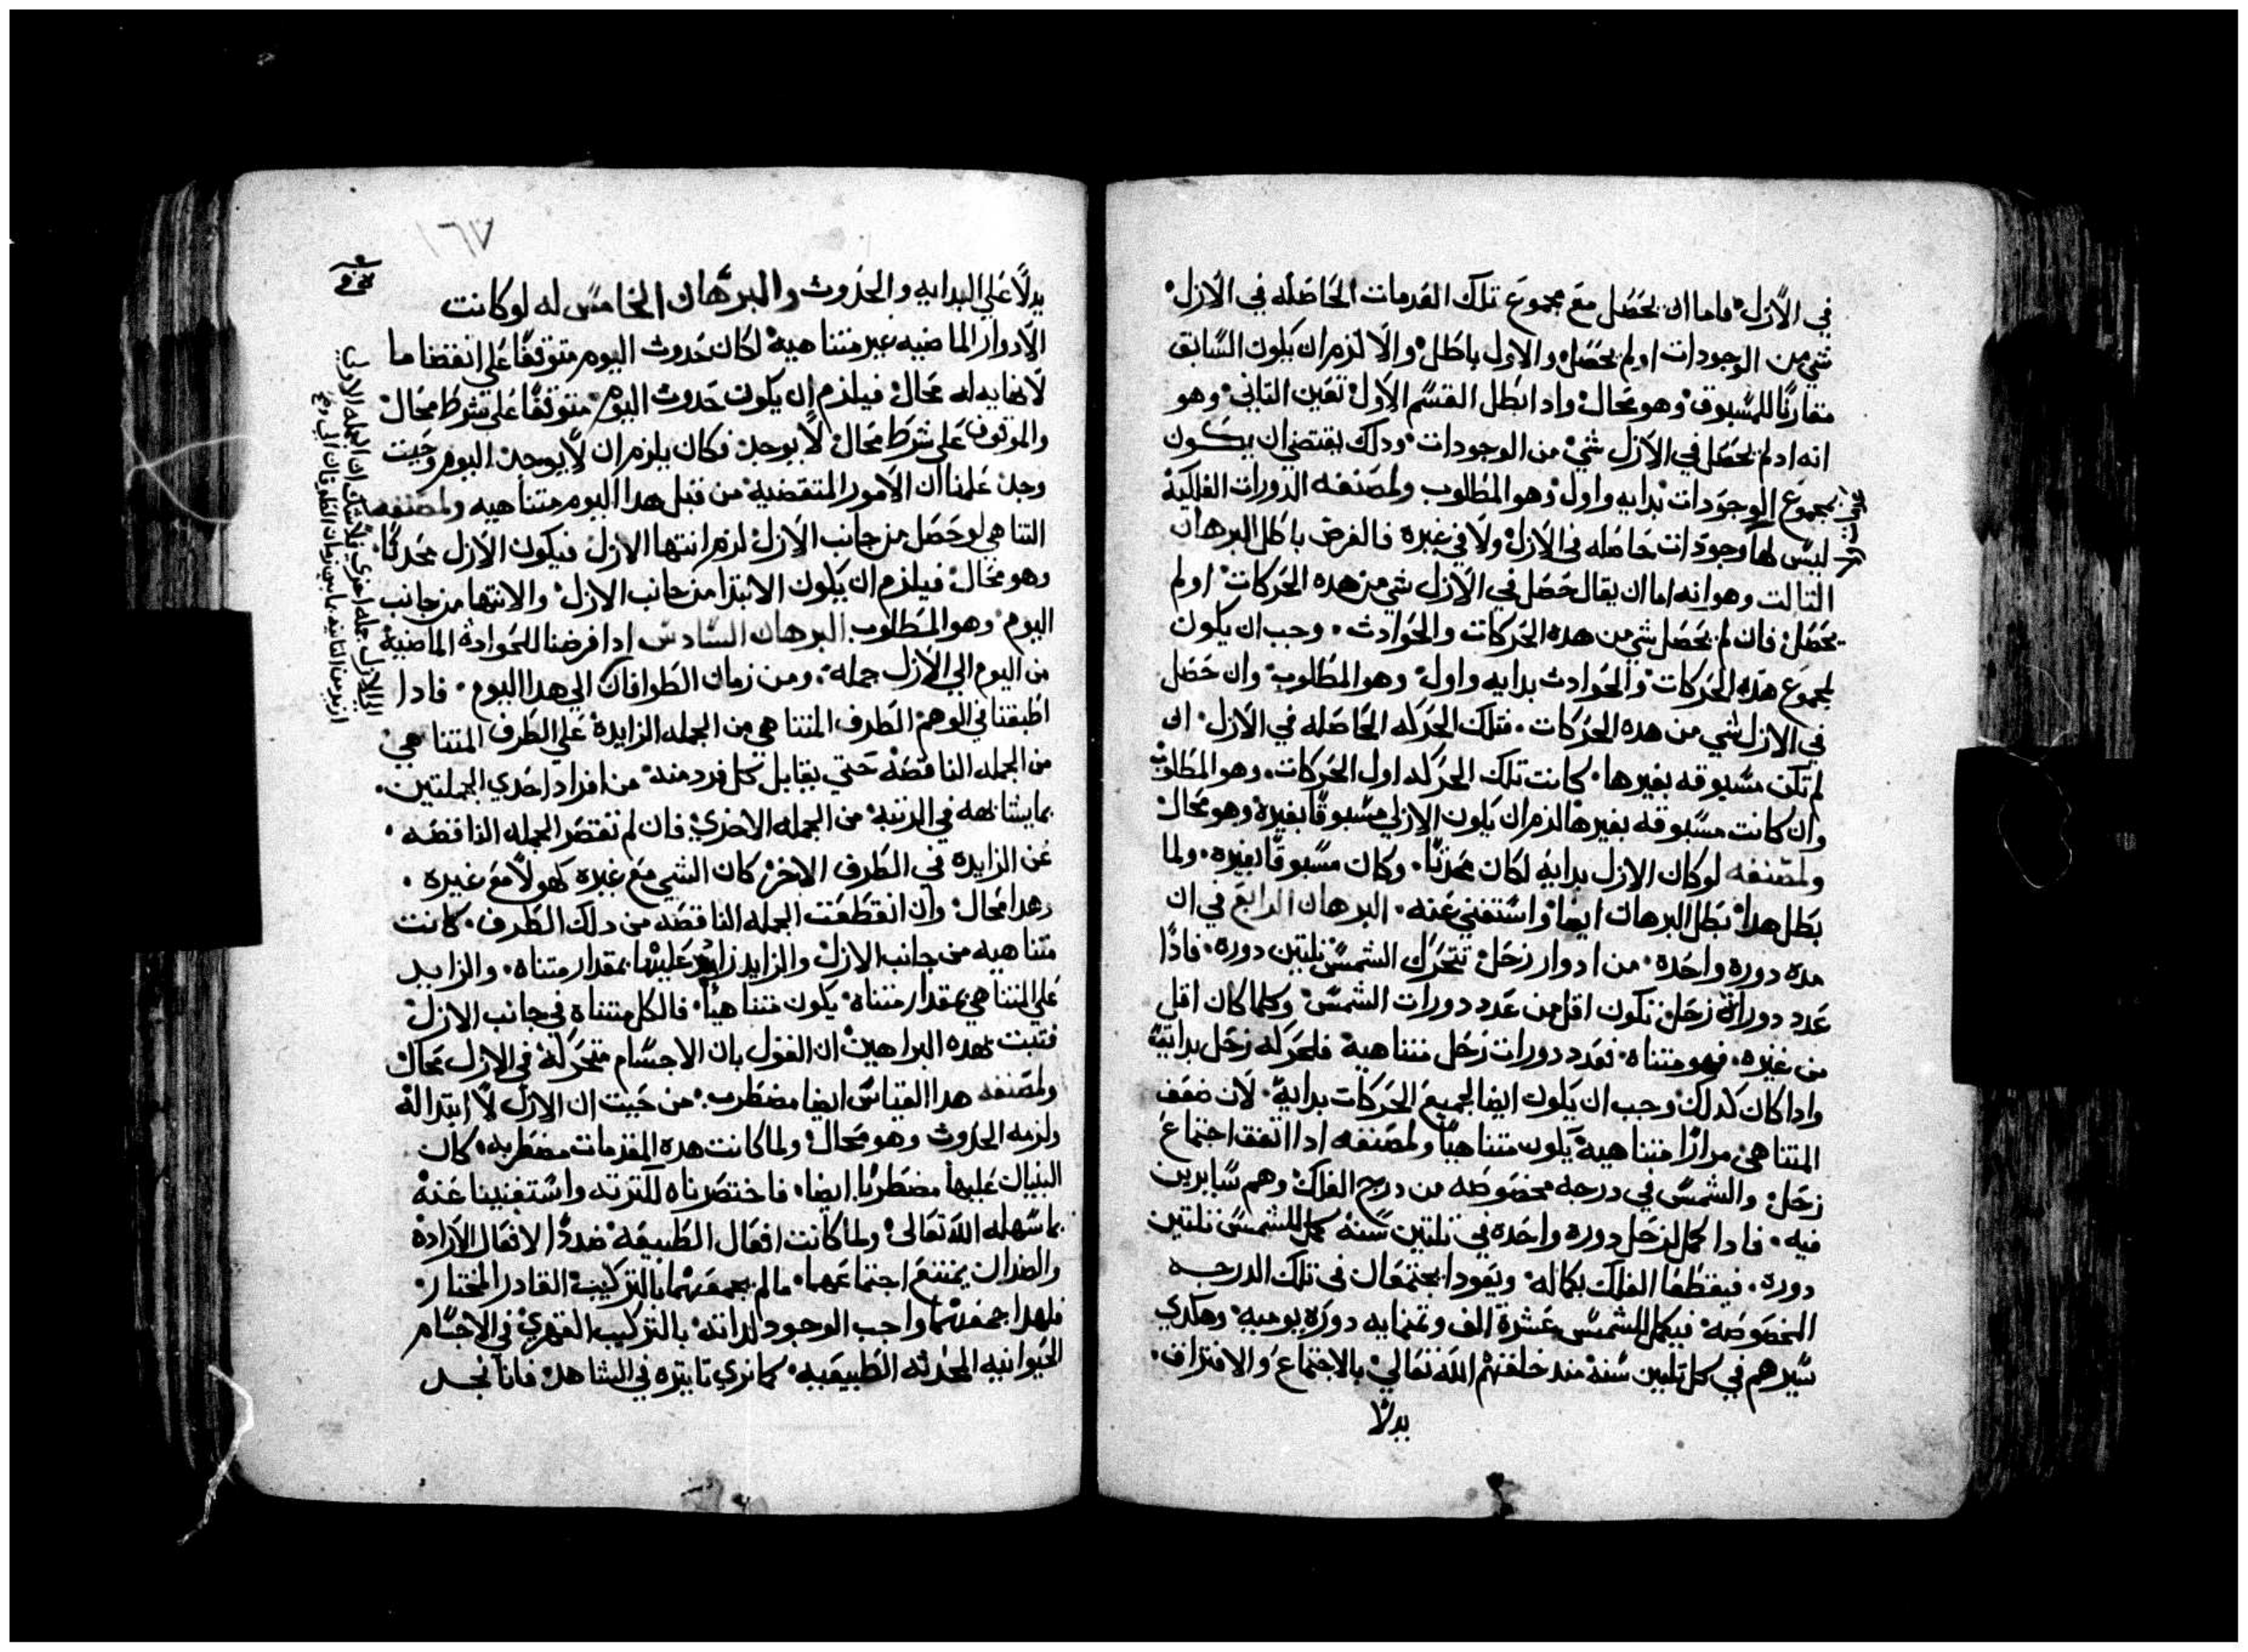 في الازل، فاما ان يحصل مع مجموع تلك العدمات الحاصله في الازل،
شي من الوجودات او لم يحصل، والاول باطل، والا لزم ان يكون السابق
مقارنًا للمسبوق، وهو محال، وادا بطل القسم الاول، تعين التاني، وهو
انه اد لم يحصل في الازل شي من الوجودات، ودلك يقتضي ان يكون
لمجموع الوجودات بدايه واول، وهو المطلوب ولمصنفه الدورات الفلكية
ليس لها وجودات حاصله في الازل، ولا في غيره فالفرض باطل البرهان
التالت وهو انه اما ان يقال حصل في الازل شي من هده الحركات، او لم
يحصل، فان لم يحصل شي من هده الحركات والحوادث، وجب ان يكون
لمجموع هده الحركات، والحوادث بدايه واول، وهو المطلوب، وان حصل
في الازل شي من هده الحركات، فتلك الحركه الحاصله في الازل، ان
لم تكن مسبوقه بغيرها، كانت تلك الحركه اول الحركات، وهو المطلوب
وان كانت مسبوقه بغيرها لزم ان يكون الازلي مسبوقًا بغيره وهو محال
ولمصنفه لو كان الازل بدايه لكان محدثًا، وكان مسبوقًا بغيره، ولما
بطل هدا، بطل البرهان ايضا، واستغني عنه، البرهان الرابع في ان
مده دورة واحدة، من ادوار زحل، تتحرك الشمس تلتين دوره، فادًا
عدد دوراة زحل، تكون اقل من عدد دورات الشمس، وكلما كان اقل
من غيره، فهو متناه، فعدد دورات زحل متناهية فلحركه زحل بداية
وادا كان كدلك، وجب ان يكون ايضا لجميع الحركات بداية، لان ضعف
المتناهي مرارًا متناهية يكون متناهيًا ولمصنفه ادا اتفق اجتماع
زحل، والشمس في درجه مخصوصه من درج الفلك، وهم سايرين
فيه، فادا كمل لزحل دورة واحده في تلتين سنة كمل للشمس تلتين
دورة، فيقطعا الفلك بكماله، ويعودا يجتمعان في تلك الدرجه
المخصوصه، فيكمل للشمس عشرة الف وتمنمايه دورة يوميه، وهكدي
سيرهم في كل تلتين سنة، مند خلقتهم الله تعالي، بالاجتماع، والافتراق،
بدلًا
١٦٧
بدلًا علي البدايه والحدوث والبرهان الخامس له لو كانت
الادوار الماضيه غير متناهية، لكان حدوث اليوم متوقفًا علي انقضا ما
لا نهايه له محال، فيلزم ان يكون حدوث اليوم، متوقفًا علي شرط محال،
والموقوف علي شرط محال، لا يوجد، فكان يلزم ان لا يوجد، اليوم وحيت
وجد، علمنا ان الامور المتقضية، من قبل هدا اليوم متناهيه ولمصنفه
التناهي لو حصل من جانب الازل، لزم انتها الازل، فيكون الازل محدثًا،
وهو محال، فيلزم ان يكون الابتدا من جانب الازل، والانتها من جانب
اليوم، وهو المطلوب البرهان السادس ادا فرضنا للحوادة الماضية
من اليوم الي الازل جمله، ومن زمان الطوافان الي هدا اليوم، فادا
اطبقنا في الوهم، الطرف المتناهي من الجمله الزايدة، علي الطرف المتناهي،
من الجمله الناقصه، حتي يقابل كل فرد منه، من افراد احدي الجملتين،
بما يشابهه في الرتبة، من الجمله الاخري، فان لم تقتصر الجمله الناقصه،
عن الزايدة في الطرف الاخر، كان الشي مع غيره كهو لا مع غيره،
وهدا محال، وان انقطعت الجمله الناقصه من دلك الطرف، كانت
متناهيه من جانب الازل، والزايد زايد عليها بمقدار متناه، والزايد
علي المتناهي بمقدار متناه، يكون متناهيًا، فالكل متناه في جانب الازل،
فتبت بهده البراهين، ان القول بان الاجسام متحركة، في الازل محال
ولمصنفه هدا القياس ايضا مضطرب، من حيت ان الازل لا ابتدا له
ولزمه الحدوث وهو محال، ولما كانت هده المقدمات مضطربه، كان
البنيان عليها مضطربًا ايضا، فاختصرناه لكترته واستغنينا عنه
بما سهله الله تعالي، ولما كانت افعال الطبيعة، ضدًا لافعال الارادة
والضدان يمتنع اجتماعهما، ما لم يجمعهما بالتركيب، القادر المختار،
فلهدا جمعهما واجب الوجود لداته، بالتركيب القهري، في الاجسام
الحيوانيه المحدثه الطبيعيه، كما نري تاتيره في الشاهد، فانا نجد
الي الازل جمله اخري فلا شك ان الجمله الاولي
ازيد من التانيه بما بين زمان الطوفان الي